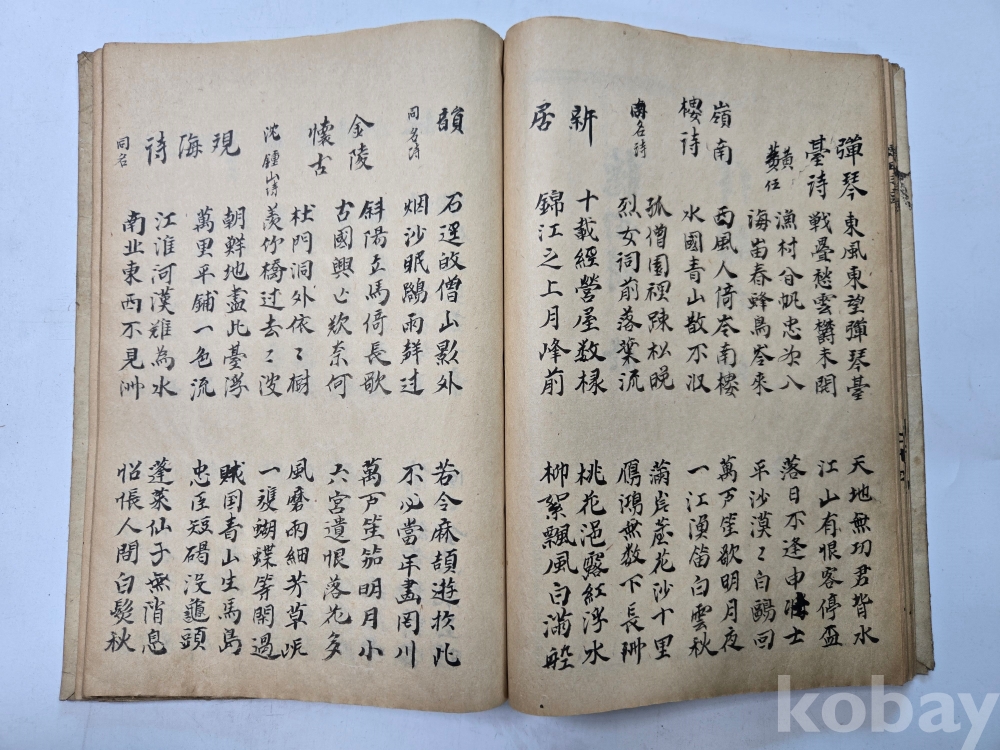 彈琴臺詩 黃五
東風東望彈琴臺 天地無功君背水
戰疊愁雲欝未開 江山有恨客停盃
漁村分帆忠 八 落日不逢申 士
海 春蜂鳥岺來 平沙漠〻白鷗回
嶺南樓詩
西風人倚岺南樓 萬戶笙歌明月夜
水國青山散不收 一江漁笛白雲秋
同名詩
孤僧園裡踈松晚 蒲岸芦花沙十里
烈女祠前落葉流 鴈鴻無数下長洲
新居
十載經營屋数椽 桃花浥露紅浮水
錦江之上月峰前 柳絮飄風白滿船
韻
石逕 僧山影外 若令麻頡遊於此
同名詩
烟沙眠鷗雨群过 不必當年畫罔川
金陵懷古
斜陽立馬倚長歌 萬戶笙笳明月小
古國興亡欸奈何 六宮遺恨落花多
沈鍾山詩
杜門洞外依〻樹 風磨雨細芳草
羡竹橋过去〻波 一雙蝴蝶等閑過
現海詩
朝鮮地盡此臺浮 賊国青山生馬島
萬里平鋪一色流 忠臣短碣没龜頭
同名
江淮河漢難為水 蓬萊仙子無消息
南北東西不見洲 怊悵人間白髮秋
kobay